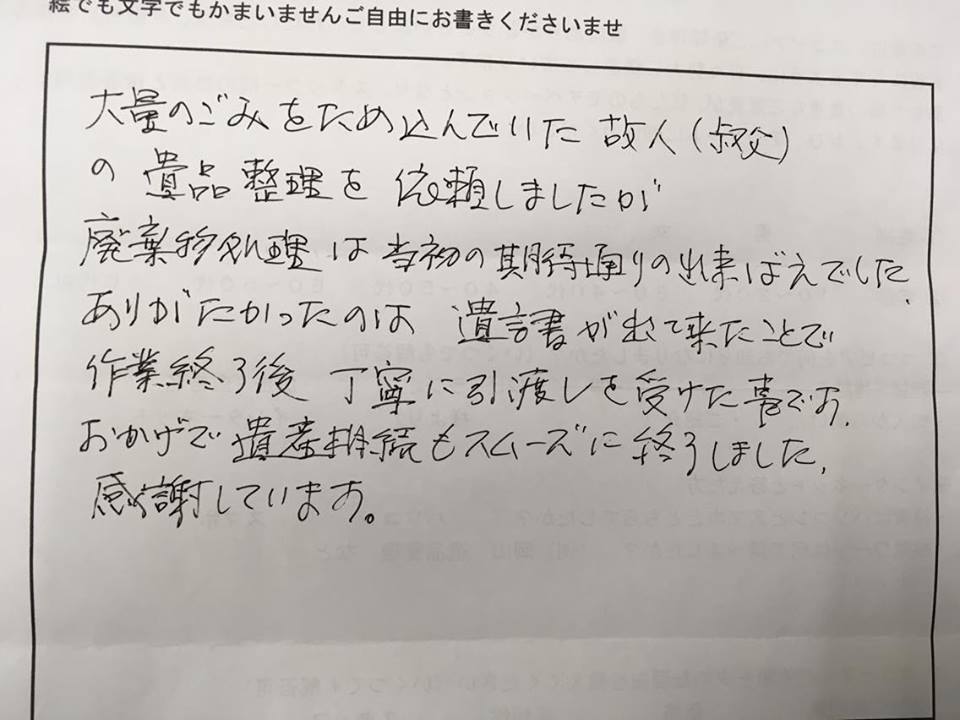 絵でも文字でもかまいませんご自由にお書きくださいませ
大量のごみをため込んでいた 故人(叔父)
の 遺品整理を 依頼しましたが
廃棄物処理は 当初の期待通りの出来ばえでした、
ありがたかったのは 遺言書が出て来たことで
作業終了後 丁寧に引渡しを受けた事です、
おかげで 遺産相続もスムーズに終了しました、
感謝しています。